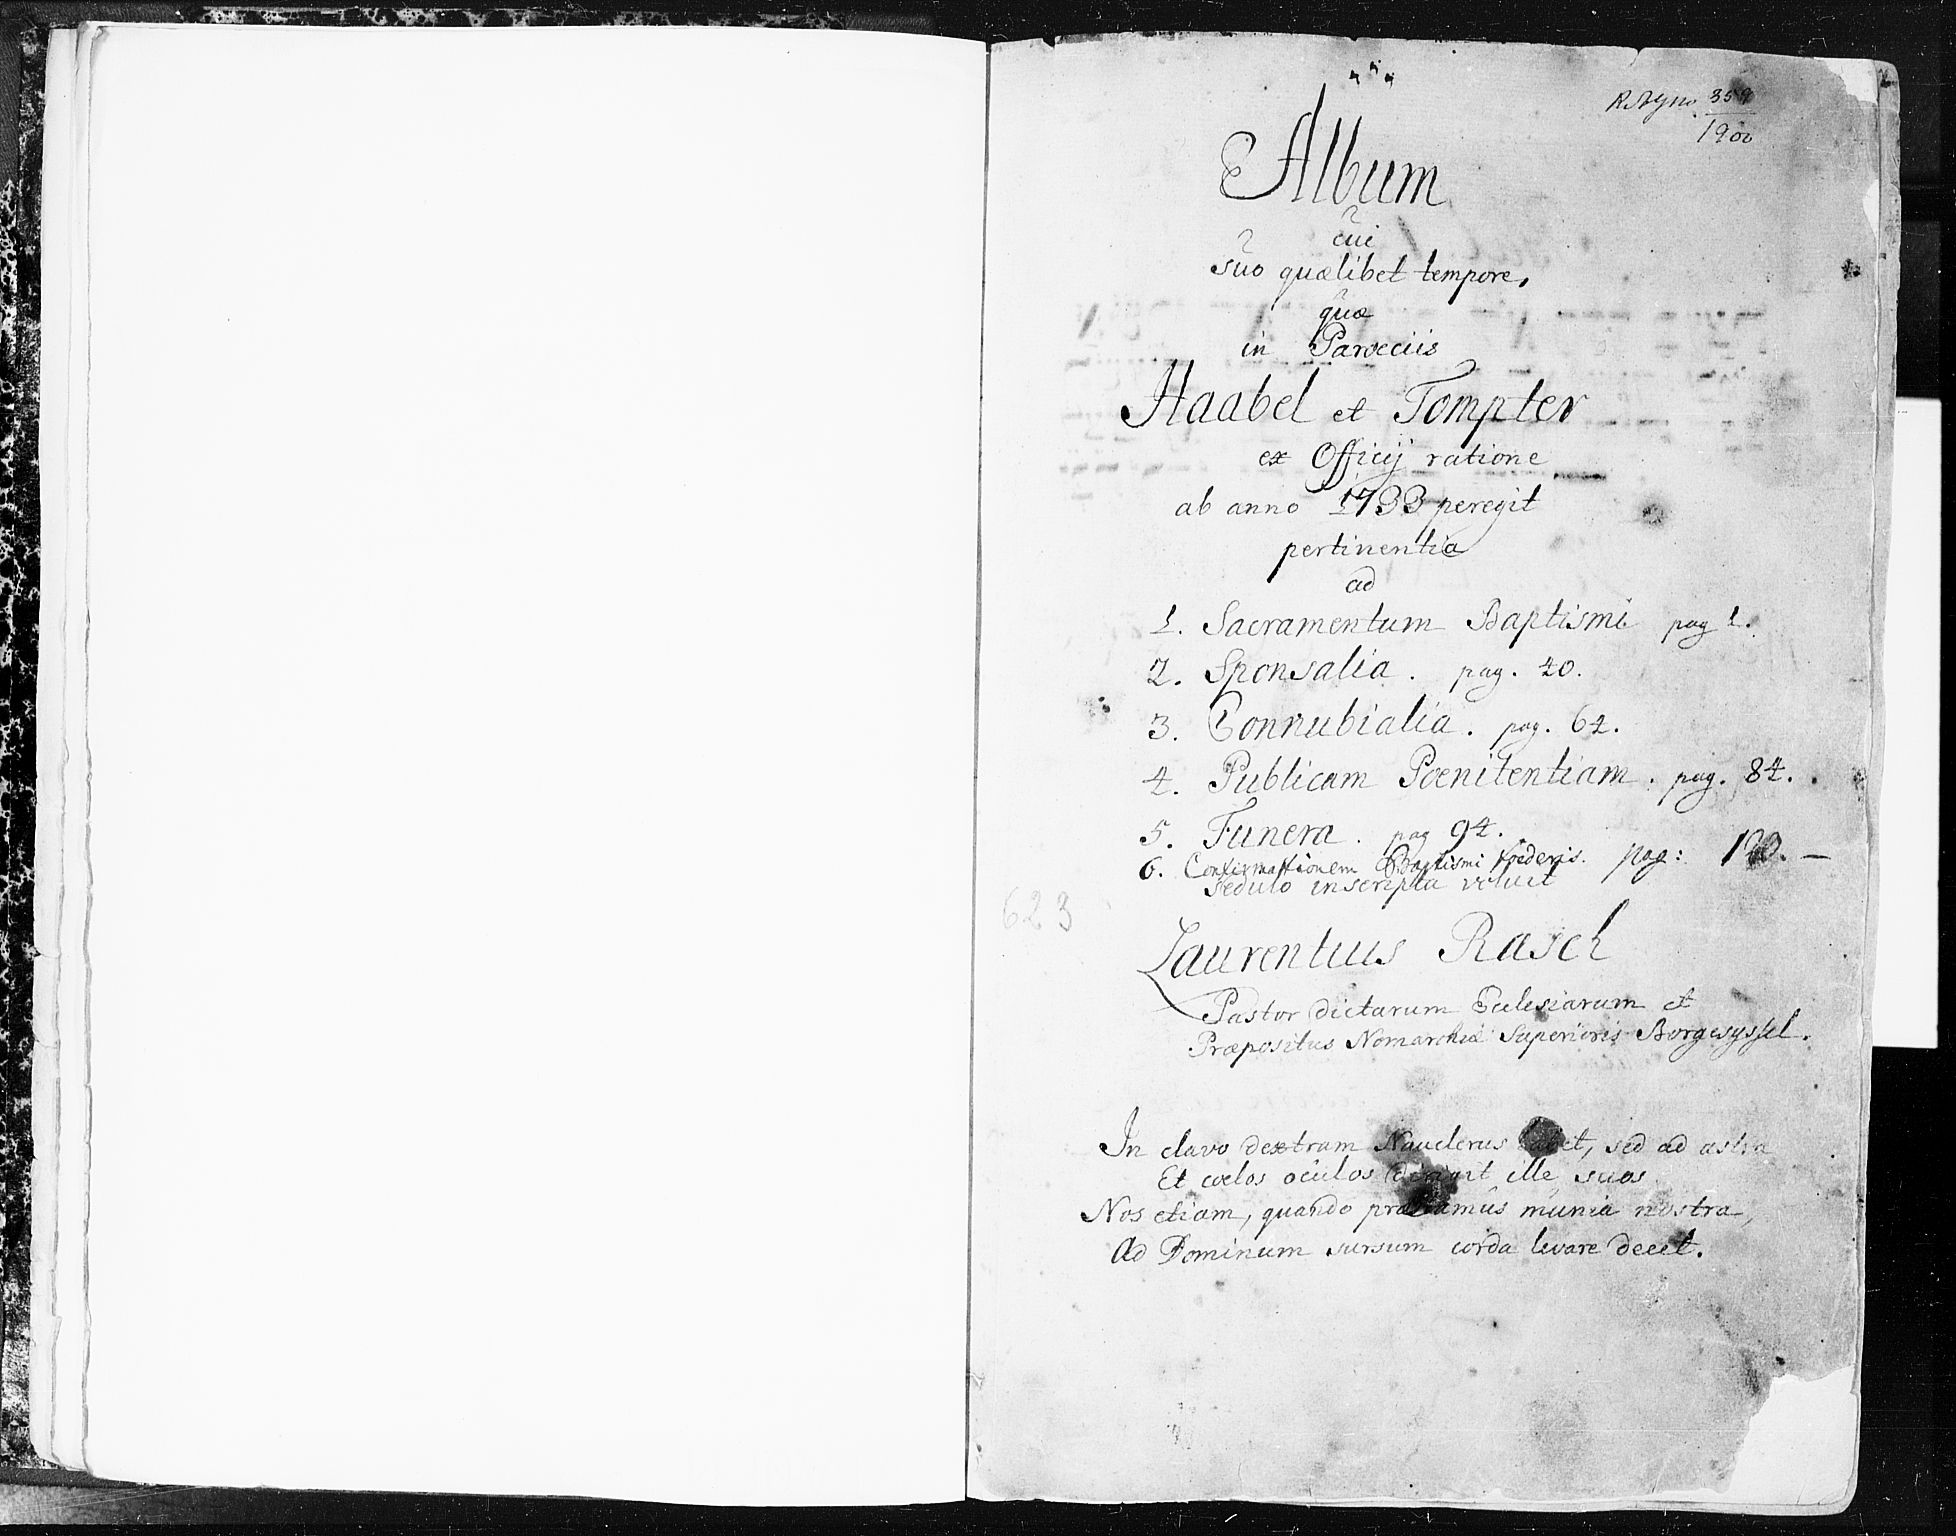 359
1900
Album
cui
suo quælibet tempore,
quæ
in Paroeciis
Haabel et Tompter
ex Officij ratione
ab anno 1733 peregit
pertinentia
ad
1. Sacramentum Baptismi pag 1.
2. Sponsalia. pag. 40.
3. Connubialia. pag. 64.
4. Publicam Poenitentiam. pag. 84.
5. Funera. pag 94.
6. Confirmationem Baptismi foederis. pag:
sedulo inscripta voluit
623
Laurentius Rasch
Pastor dictarum Ecclesiarum et
Præpositus Nomarchiæ Superioris Borgesyssel.
In clavo dextram Nauclerus habet, sed ad astra
Et coelos oculos dirigit ille suos
Nos etiam, quando præstamus munia nostra,
Ad Dominum sursum corda levare decet.